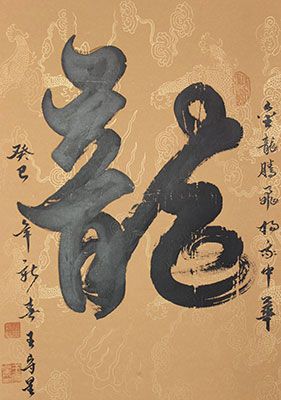 金龍騰飛揚我中華
龍
癸巳年新春王